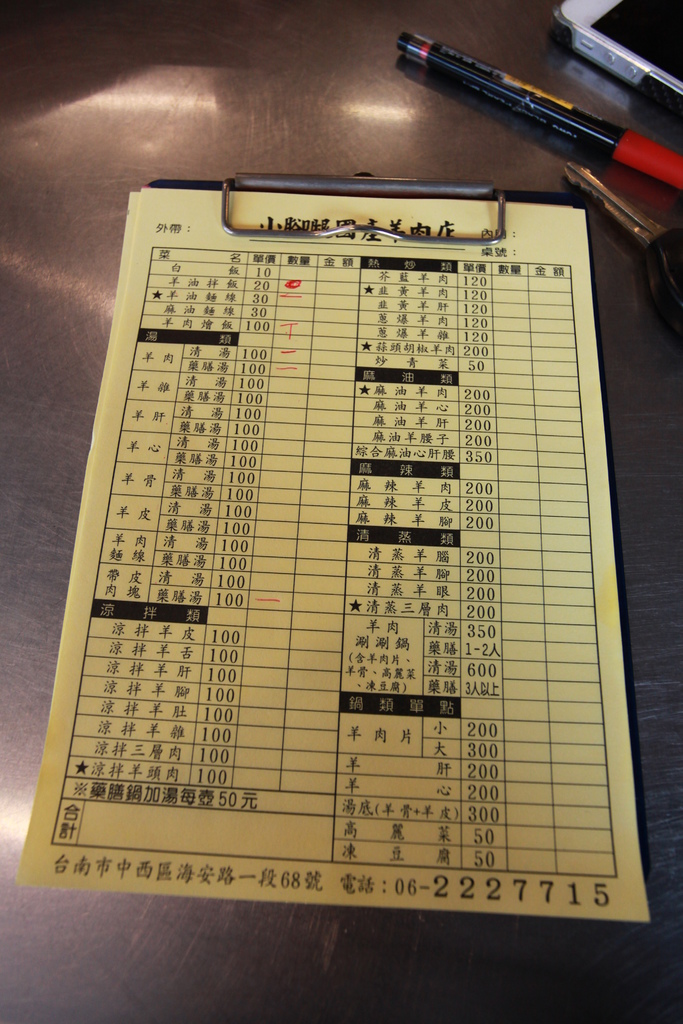 小腳腿國產羊肉店
外帶：
內用：
桌號：
菜 名 單價 數量 金額
白飯 10
羊油拌飯 20
★羊油麵線 30 一
麻油麵線 30
羊肉燴飯 100 丁
湯類
羊肉 清湯 100 一
藥膳湯 100 一
羊雜 清湯 100
藥膳湯 100
羊肝 清湯 100
藥膳湯 100
羊心 清湯 100
藥膳湯 100
羊骨 清湯 100
藥膳湯 100
羊皮 清湯 100
藥膳湯 100
羊肉麵線 清湯 100
藥膳湯 100
帶皮肉塊 清湯 100
藥膳湯 100 一
涼拌類
涼拌羊皮 100
涼拌羊舌 100
涼拌羊肝 100
涼拌羊腳 100
涼拌羊肚 100
涼拌羊雜 100
涼拌三層肉 100
★涼拌羊頭肉 100
※藥膳鍋加湯每壺50元
合計
熱炒類 單價 數量 金額
芥藍羊肉 120
★韭黃羊肉 120
韭黃羊肝 120
蔥爆羊肉 120
蔥爆羊雜 120
★蒜頭胡椒羊肉 200
炒青菜 50
麻油類
★麻油羊肉 200
麻油羊心 200
麻油羊肝 200
麻油羊腰子 200
綜合麻油心肝腰 350
麻辣類
麻辣羊肉 200
麻辣羊皮 200
麻辣羊腳 200
清蒸類
清蒸羊腦 200
清蒸羊腳 200
清蒸羊眼 200
★清蒸三層肉 200
羊肉涮涮鍋
(含羊肉片、羊骨、高麗菜、凍豆腐)
清湯 350
藥膳 1-2人
清湯 600
藥膳 3人以上
鍋類單點
羊肉片 小 200
大 300
羊肝 200
羊心 200
湯底(羊骨+羊皮) 300
高麗菜 50
凍豆腐 50
台南市中西區海安路一段68號 電話：06-2227715